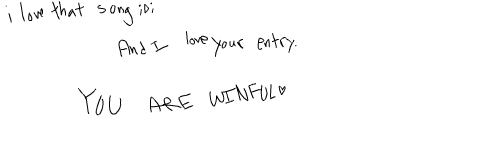 i love that song ;o;
And I love your entry.
YOU ARE WINFUL♥